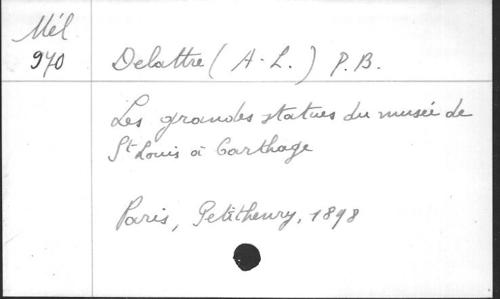 Mél
970
Delattre (A-L.) P.B.
Les grandes statues du musée de
St Louis à Carthage
Paris, Petithenry, 1898